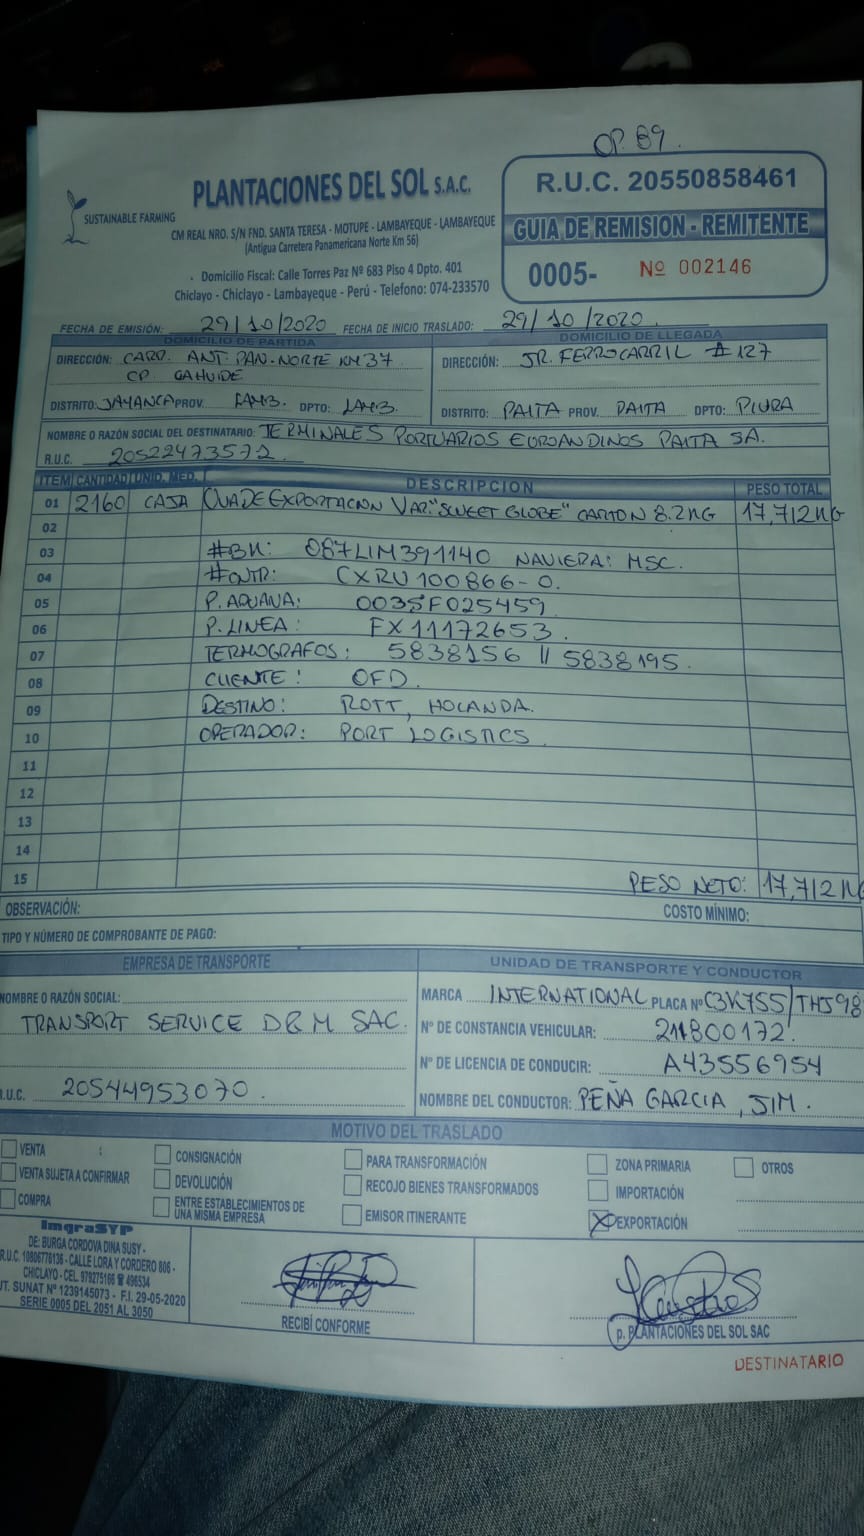 OP. 89.
PLANTACIONES DEL SOL S.A.C.
SUSTAINABLE FARMING
CM REAL NRO. S/N FND. SANTA TERESA - MOTUPE - LAMBAYEQUE - LAMBAYEQUE
(Antigua Carretera Panamericana Norte Km 56)
Domicilio Fiscal: Calle Torres Paz Nº 683 Piso 4 Dpto. 401
Chiclayo - Chiclayo - Lambayeque - Perú - Telefono: 074-233570
R.U.C. 20550858461
GUIA DE REMISION - REMITENTE
0005- Nº 002146
FECHA DE EMISIÓN: 29/10/2020 FECHA DE INICIO TRASLADO: 29/10/2020
DOMICILIO DE PARTIDA DOMICILIO DE LLEGADA
DIRECCIÓN: CARR. ANT. PAN. NORTE KM 37 DIRECCIÓN: JR. FERROCARRIL # 127
CP CAHUIDE
DISTRITO: JAYANCA PROV. LAMB. DPTO: LAMB. DISTRITO: PAITA PROV. PAITA DPTO: PIURA
NOMBRE O RAZÓN SOCIAL DEL DESTINATARIO: TERMINALES PORTUARIOS EUROANDINOS PAITA SA.
R.U.C. 20522473571
ITEM CANTIDAD UNID. MED. DESCRIPCION PESO TOTAL
01 2160 CAJA UVA DE EXPORTACION VAR: "SWEET GLOBE" CARTON 8.2KG 17,712KG
02
03 #BK: 087LIM391140 NAVIERA: MSC.
04 #CNTR: CXRU100866-0.
05 P. ADUANA: 0035F025459
06 P. LINEA: FX11172653.
07 TERMOGRAFOS: 5838156 // 5838195.
08 CLIENTE: OFD.
09 DESTINO: ROTT, HOLANDA.
10 OPERADOR: PORT LOGISTICS
11
12
13
14
15 PESO NETO: 17,712KG
OBSERVACIÓN: COSTO MÍNIMO:
TIPO Y NÚMERO DE COMPROBANTE DE PAGO:
EMPRESA DE TRANSPORTE UNIDAD DE TRANSPORTE Y CONDUCTOR
NOMBRE O RAZÓN SOCIAL: MARCA INTERNATIONAL PLACA Nº C3K755/THJ98
TRANSPORT SERVICE D&M SAC. Nº DE CONSTANCIA VEHICULAR: 211800172.
Nº DE LICENCIA DE CONDUCIR: A43556954
R.U.C. 20544953070. NOMBRE DEL CONDUCTOR: PEÑA GARCIA, JIM.
MOTIVO DEL TRASLADO
VENTA CONSIGNACIÓN PARA TRANSFORMACIÓN ZONA PRIMARIA OTROS
VENTA SUJETA A CONFIRMAR DEVOLUCIÓN RECOJO BIENES TRANSFORMADOS IMPORTACIÓN
COMPRA ENTRE ESTABLECIMIENTOS DE UNA MISMA EMPRESA EMISOR ITINERANTE X EXPORTACIÓN
ImgraSYP
DE: BURGA CORDOVA DINA SUSY -
R.U.C. 10806776136 - CALLE LORA Y CORDERO 806 -
CHICLAYO - CEL. 979275166 ☎ 496534
UT. SUNAT Nº 1239145073 - F.I. 29-05-2020
SERIE 0005 DEL 2051 AL 3050
RECIBÍ CONFORME
p. PLANTACIONES DEL SOL SAC
DESTINATARIO